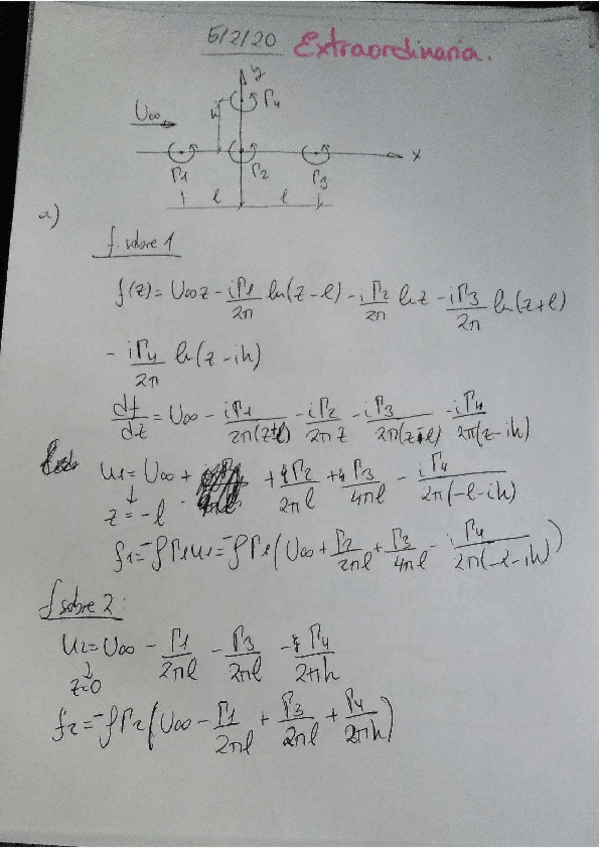 5/2/20 Extraordinaria.
y
U∞ h Γ4
x
Γ1 Γ2 Γ3
l l
a)
f. sobre 1
f(z) = U∞z - iΓ1/2π ln(z-l) - iΓ2/2π ln z - iΓ3/2π ln(z+l)
- iΓ4/2π ln(z-ih)
df/dz = U∞ - iΓ1/2π(z+l) - iΓ2/2πz - iΓ3/2π(z-l) - iΓ4/2π(z-ih)
u1 = U∞ + Γ2/2πl + Γ3/4πl - iΓ4/2π(-l-ih)
z = -l
f1 = -ρΓ1u1 = -ρΓ1(U∞ + Γ2/2πl + Γ3/4πl - iΓ4/2π(-l-ih))
f sobre 2:
u2 = U∞ - Γ1/2πl - Γ3/2πl - Γ4/2πh
z=0
f2 = -ρΓ2(U∞ - Γ1/2πl + Γ3/2πl + Γ4/2πh)